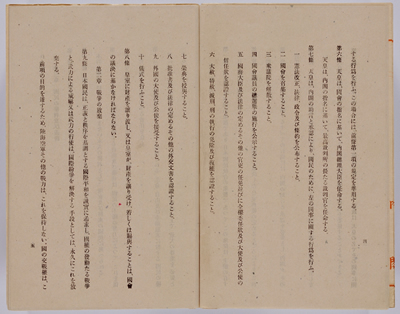 する行爲を行ふ。この場合には、前條第一項の規定を準用する。
第六條　天皇は、國會の指名に基いて、内閣總理大臣を任命する。
天皇は、内閣の指名に基いて、最高裁判所の長たる裁判官を任命する。
第七條　天皇は、内閣の助言と承認により、國民のために、左の國事に關する行爲を行ふ。
一　憲法改正、法律、政令及び條約を公布すること。
二　國會を召集すること。
三　衆議院を解散すること。
四　國會議員の總選擧の施行を公示すること。
五　國務大臣及び法律の定めるその他の官吏の任免竝びに全權委任狀及び大使及び公使の
信任狀を認證すること。
六　大赦、特赦、減刑、刑の執行の免除及び復權を認證すること。
七　榮典を授與すること。
八　批准書及び法律の定めるその他の外交文書を認證すること。
九　外國の大使及び公使を接受すること。
十　儀式を行ふこと。
第八條　皇室に財產を讓り渡し、又は皇室が、財產を讓り受け、若しくは賜與することは、國會
の議決に基かなければならない。
第二章　戰爭の放棄
第九條　日本國民は、正義と秩序を基調とする國際平和を誠實に希求し、國權の發動たる戰爭
と、武力による威嚇又は武力の行使は、國際紛爭を解決する手段としては、永久にこれを放
棄する。
前項の目的を達するため、陸海空軍その他の戰力は、これを保持しない。國の交戰權は、こ
五